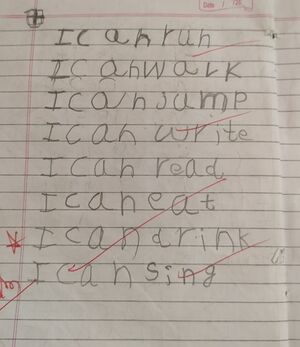 Date
I can run
I can walk
I can jump
I can write
I can read
I can eat
I can drink
I can sing